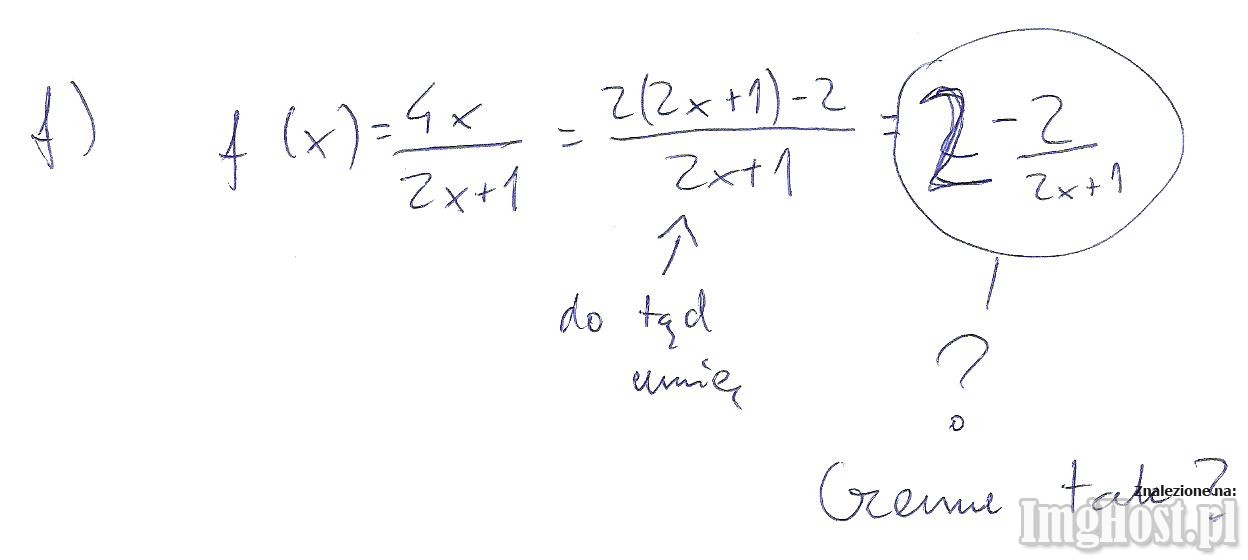 f) f(x) = 4x / 2x+1 = 2(2x+1)-2 / 2x+1 = 2 - 2 / 2x+1
do tąd
umię
?
Czemu tak?
Znalezione na:
ImgHost.pl